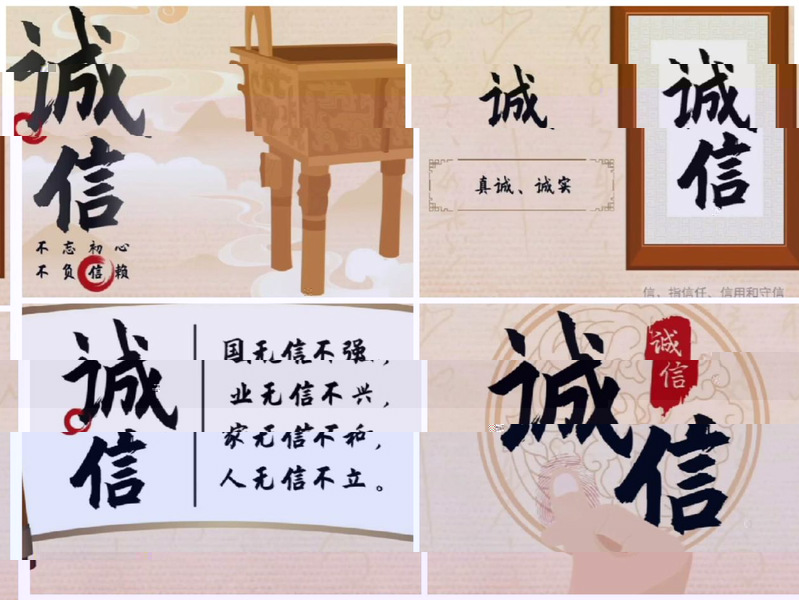 诚
信
不忘初心
不负信赖
诚
真诚、诚实
诚
信
信、指信任、信用和守信
诚
信
国无信不强,
业无信不兴,
家无信不和,
人无信不立。
诚
信
诚
信